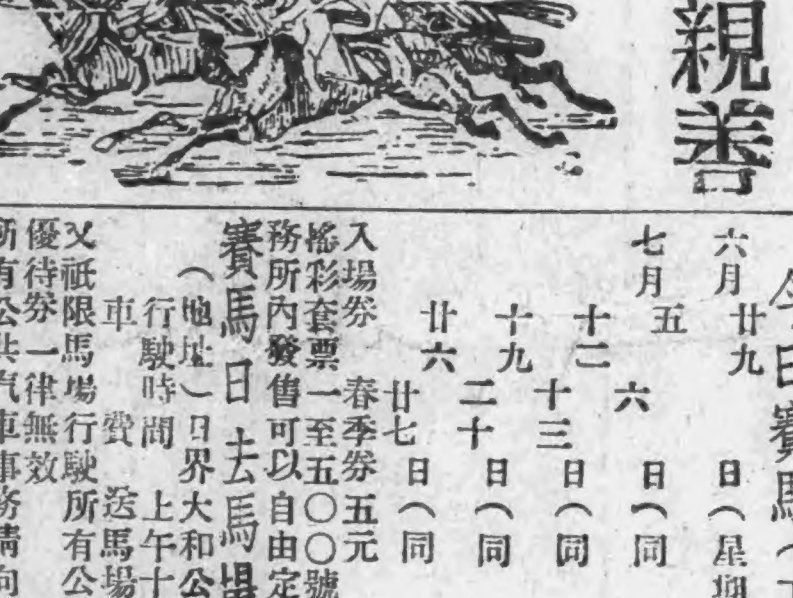 親善
今日賽馬（
六月廿九日（星期
七月五 六日（同
十二 十三日（同
十九 二十日（同
廿六 廿七日（同
入場券 春季券五元
搖彩套票一至五〇〇號
務所內發售可以自由定
賽馬日去馬場
（地址）日界大和公
行駛時間 上午十
車費 送馬場
又祇限馬場行駛所有公
優待券一律無效
所有公共汽車事務請向